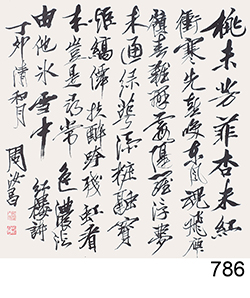 桃未芳菲杏未紅
衝寒先喜笑东風魂飛庾
嶺春難辨霞隔羅浮夢
未通绿萼添粧融寶
炬縞僊扶醉跨殘虹看
来豈是尋常色濃淡
由他冰雪中 紅樓詩
丁卯清和月 周汝昌
786